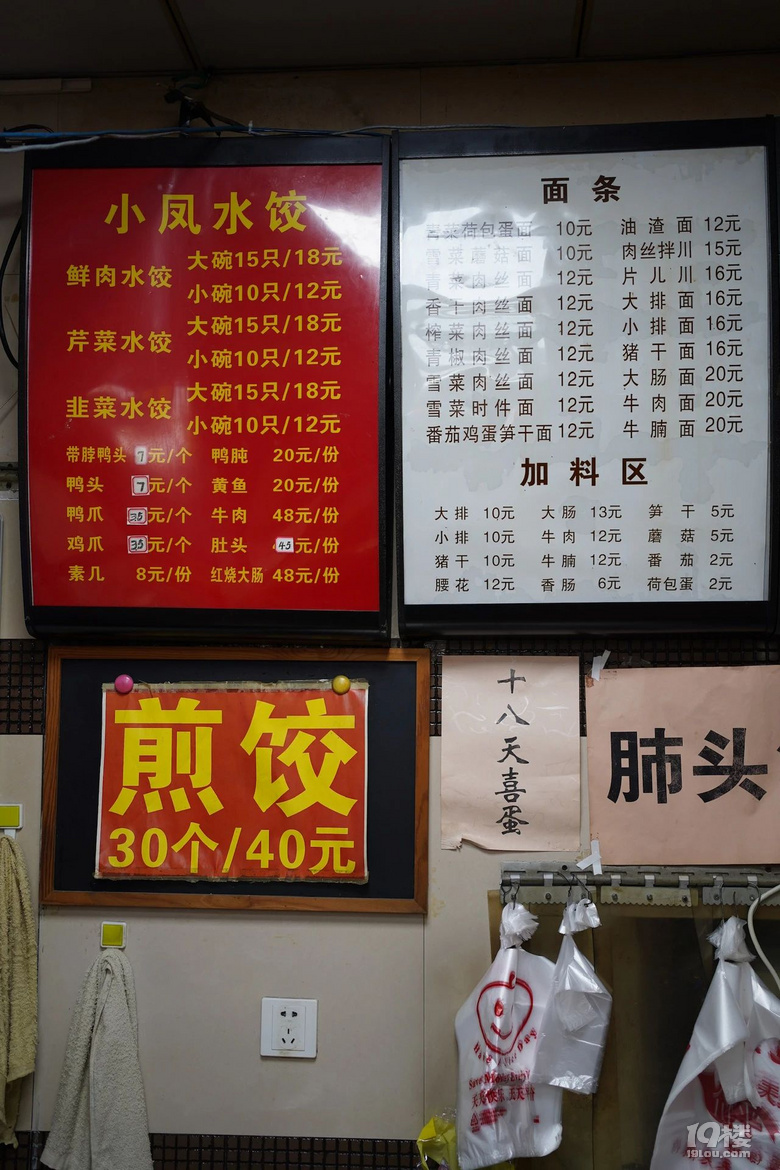 小凤水饺
鲜肉水饺 大碗15只/18元
小碗10只/12元
芹菜水饺 大碗15只/18元
小碗10只/12元
韭菜水饺 大碗15只/18元
小碗10只/12元
带脖鸭头 7元/个 鸭肫 20元/份
鸭头 7元/个 黄鱼 20元/份
鸭爪 3.5元/个 牛肉 48元/份
鸡爪 3.5元/个 肚头 45元/份
素几 8元/份 红烧大肠 48元/份
面条
青菜荷包蛋面 10元 油渣面 12元
雪菜蘑菇面 10元 肉丝拌川 15元
青菜肉丝面 12元 片儿川 16元
香干肉丝面 12元 大排面 16元
榨菜肉丝面 12元 小排面 16元
青椒肉丝面 12元 猪干面 16元
雪菜肉丝面 12元 大肠面 20元
雪菜时件面 12元 牛肉面 20元
番茄鸡蛋笋干面 12元 牛腩面 20元
加料区
大排 10元 大肠 13元 笋干 5元
小排 10元 牛肉 12元 蘑菇 5元
猪干 10元 牛腩 12元 番茄 2元
腰花 12元 香肠 6元 荷包蛋 2元
煎饺
30个/40元
十八天喜蛋
肺头
19楼
19lou.com